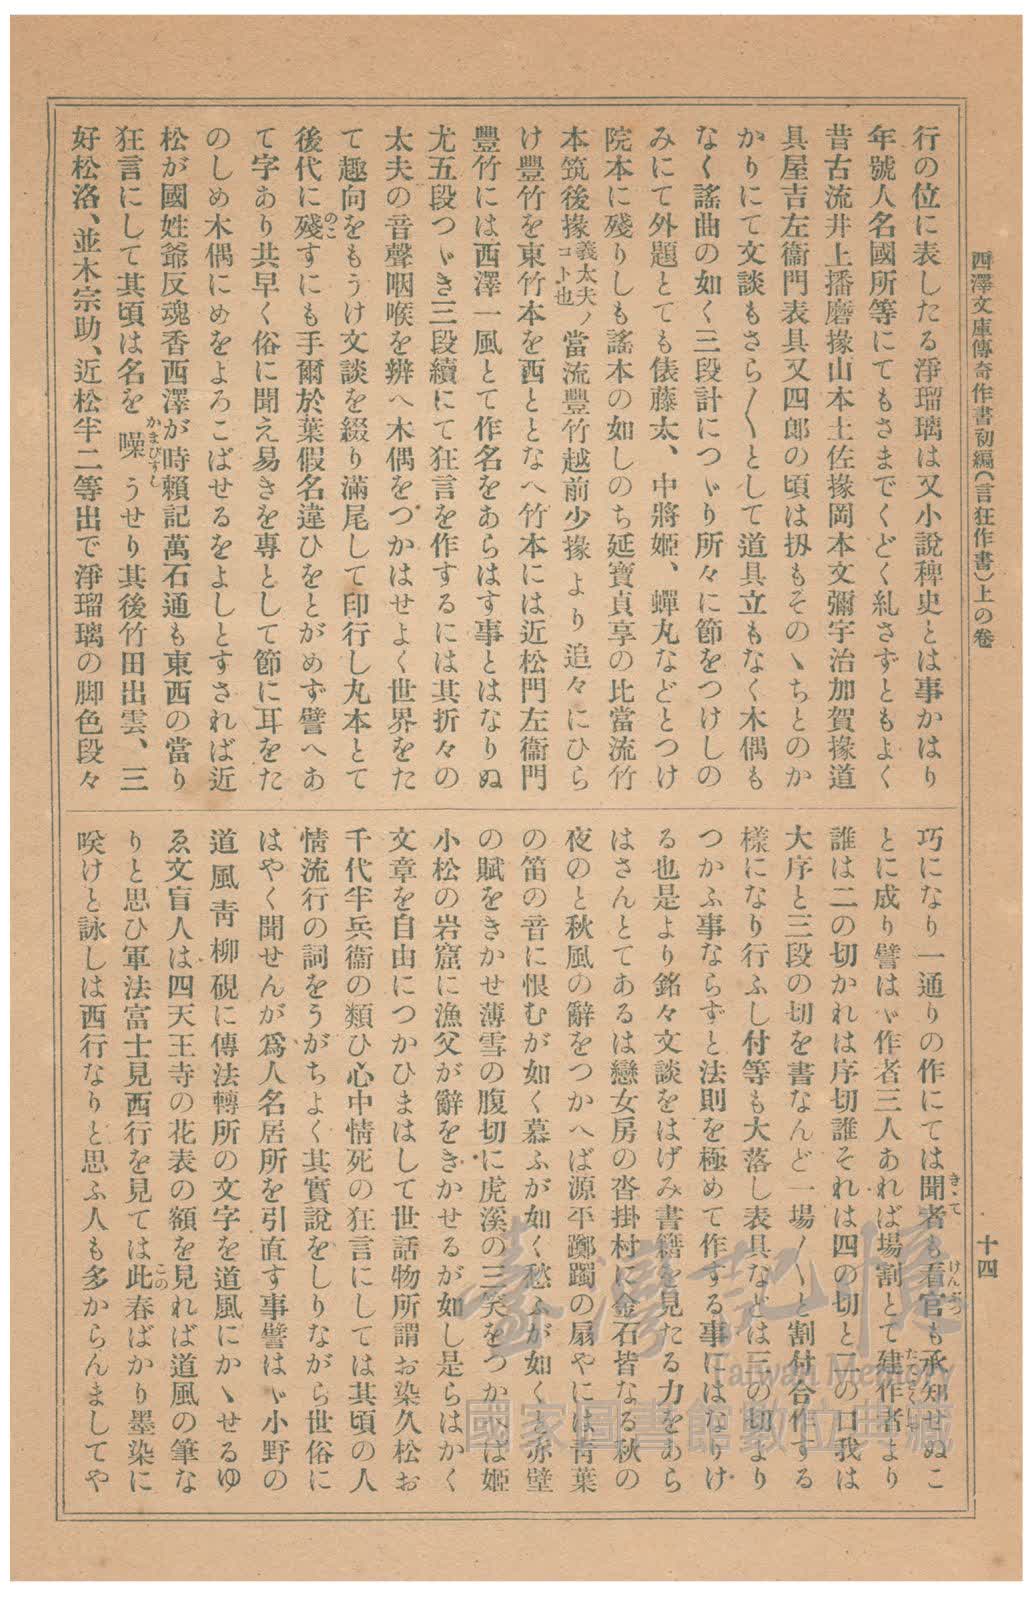 西澤文庫傳奇作書初編(言狂作書)上の卷
十四
行の位に表したる淨瑠璃は又小說稗史とは事かはり
年號人名國所等にてもさまでくどく糺さずともよく
昔古流井上播磨掾山本土佐掾岡本文彌宇治加賀掾道
具屋吉左衞門表具又四郎の頃は扨もそのゝちとのか
かりにて文談もさら〳〵として道具立もなく木偶も
なく謠曲の如く三段計につゞり所々に節をつけしの
みにて外題とても俵藤太、中將姬、蟬丸などとつけ
院本に殘りしも謠本の如しのち延寶貞享の比當流竹
本筑後掾義太夫ノコト也當流豐竹越前少掾より追々にひら
け豐竹を東竹本を西ととなへ竹本には近松門左衞門
豐竹には西澤一風とて作名をあらはす事とはなりぬ
尤五段つゞき三段續にて狂言を作するには其折々の
太夫の音聲咽喉を辨へ木偶をつかはせよく世界をた
て趣向をもうけ文談を綴り滿尾して印行し丸本とて
後代に殘すにも手爾於葉假名違ひをとがめず譬へあ
て字あり共早く俗に聞え易きを專として節に耳をた
のしめ木偶にめをよろこばせるをよしとすされば近
松が國姓爺反魂香西澤が時賴記萬石通も東西の當り
狂言にして其頃は名を噪うせり其後竹田出雲、三
好松洛、並木宗助、近松半二等出で淨瑠璃の脚色段々
巧になり一通りの作にては聞者も看官も承知せぬこ
とに成り譬はゞ作者三人あれば場割とて建作者より
誰は二の切かれは序切誰それは四の切と二の口我は
大序と三段の切を書なんど一場〳〵と割付合作する
樣になり行ふし付等も大落し表具などは三の切より
つかふ事ならずと法則を極めて作する事にはなりけ
る也是より銘々文談をはげみ書籍を見たる力をあら
はさんとてあるは戀女房の沓掛村に金石皆なる秋の
夜のと秋風の辭をつかへば源平躑躅の扇やには靑葉
の笛の音に恨むが如く慕ふが如く愁ふが如くと赤壁
の賦をきかせ薄雪の腹切に虎溪の三笑をつかへば姬
小松の岩窟に漁父が辭をきかせるが如し是らはかく
文章を自由につかひまはして世話物所謂お染久松お
千代半兵衞の類ひ心中情死の狂言にしては其頃の人
情流行の詞をうがちよく其實說をしりながら世俗に
はやく聞せんが爲人名居所を引直す事譬はゞ小野の
道風靑柳硯に傳法轉所の文字を道風にかゝせるゆ
ゑ文盲人は四天王寺の花表の額を見れば道風の筆な
りと思ひ軍法富士見西行を見ては此春ばかり墨染に
咲けと詠しは西行なりと思ふ人も多からんましてや
臺灣記憶
Taiwan Memory
國家圖書館數位典藏